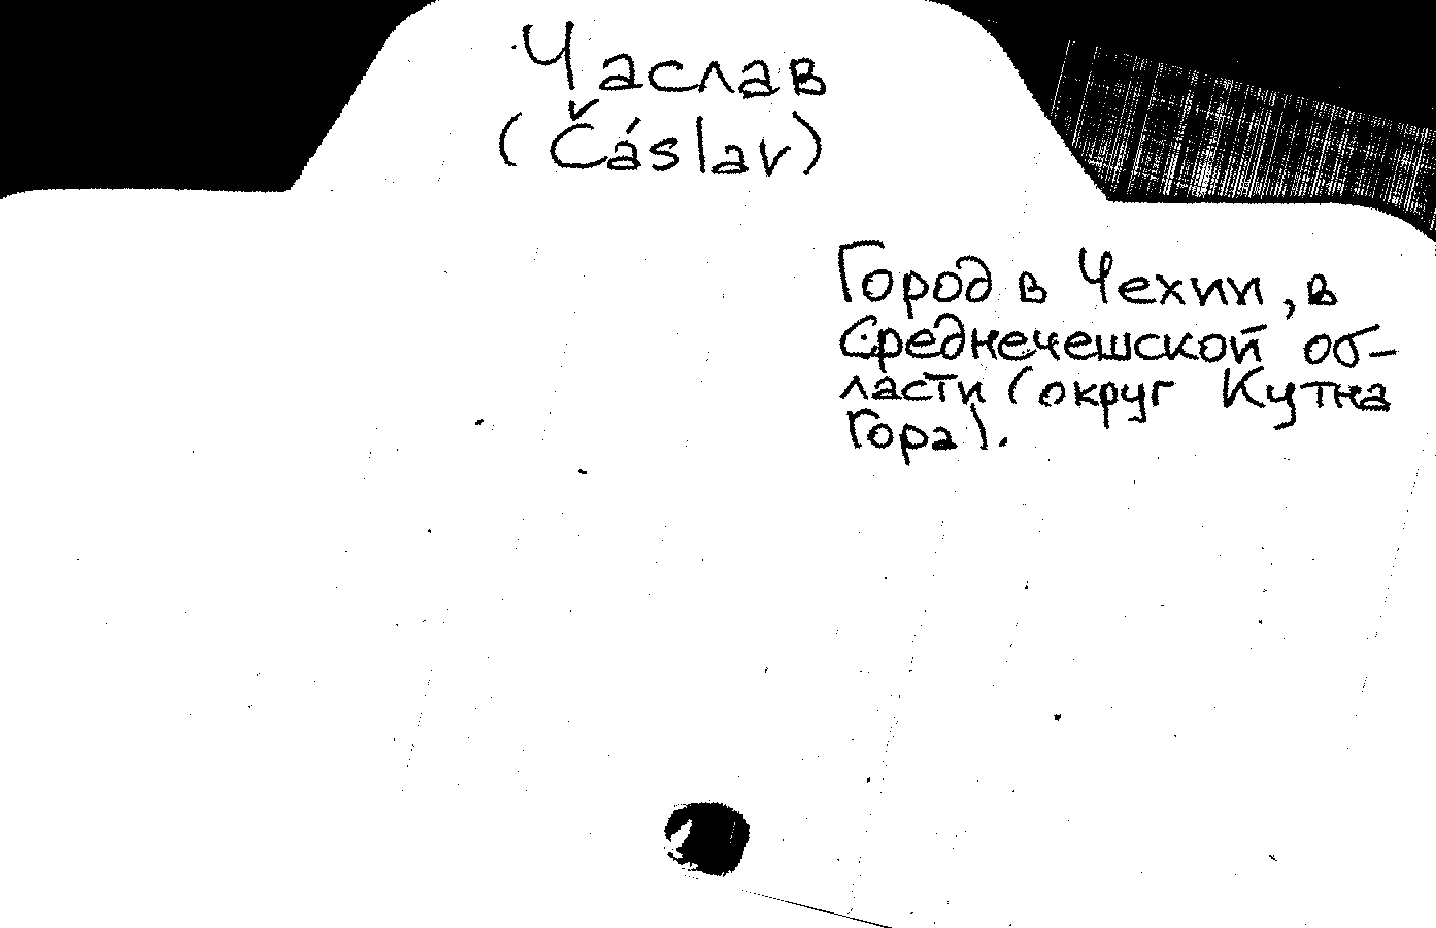 Часлав
(Čáslav)
Город в Чехии, в
Среднечешской об-
ласти (округ Кутна
Гора).